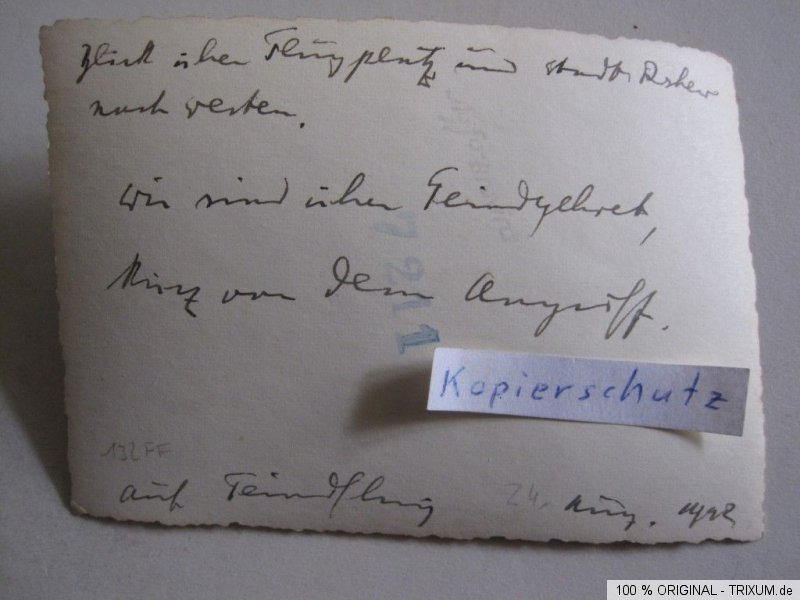 Blick über Flugplatz und Stadt Rshew
nach Westen.
Wir sind über Feindgebiet,
kurz vor dem Angriff.
Kopierschutz
132FF
auf Feindflug 24. Aug. 1942
100 % ORIGINAL - TRIXUM.de